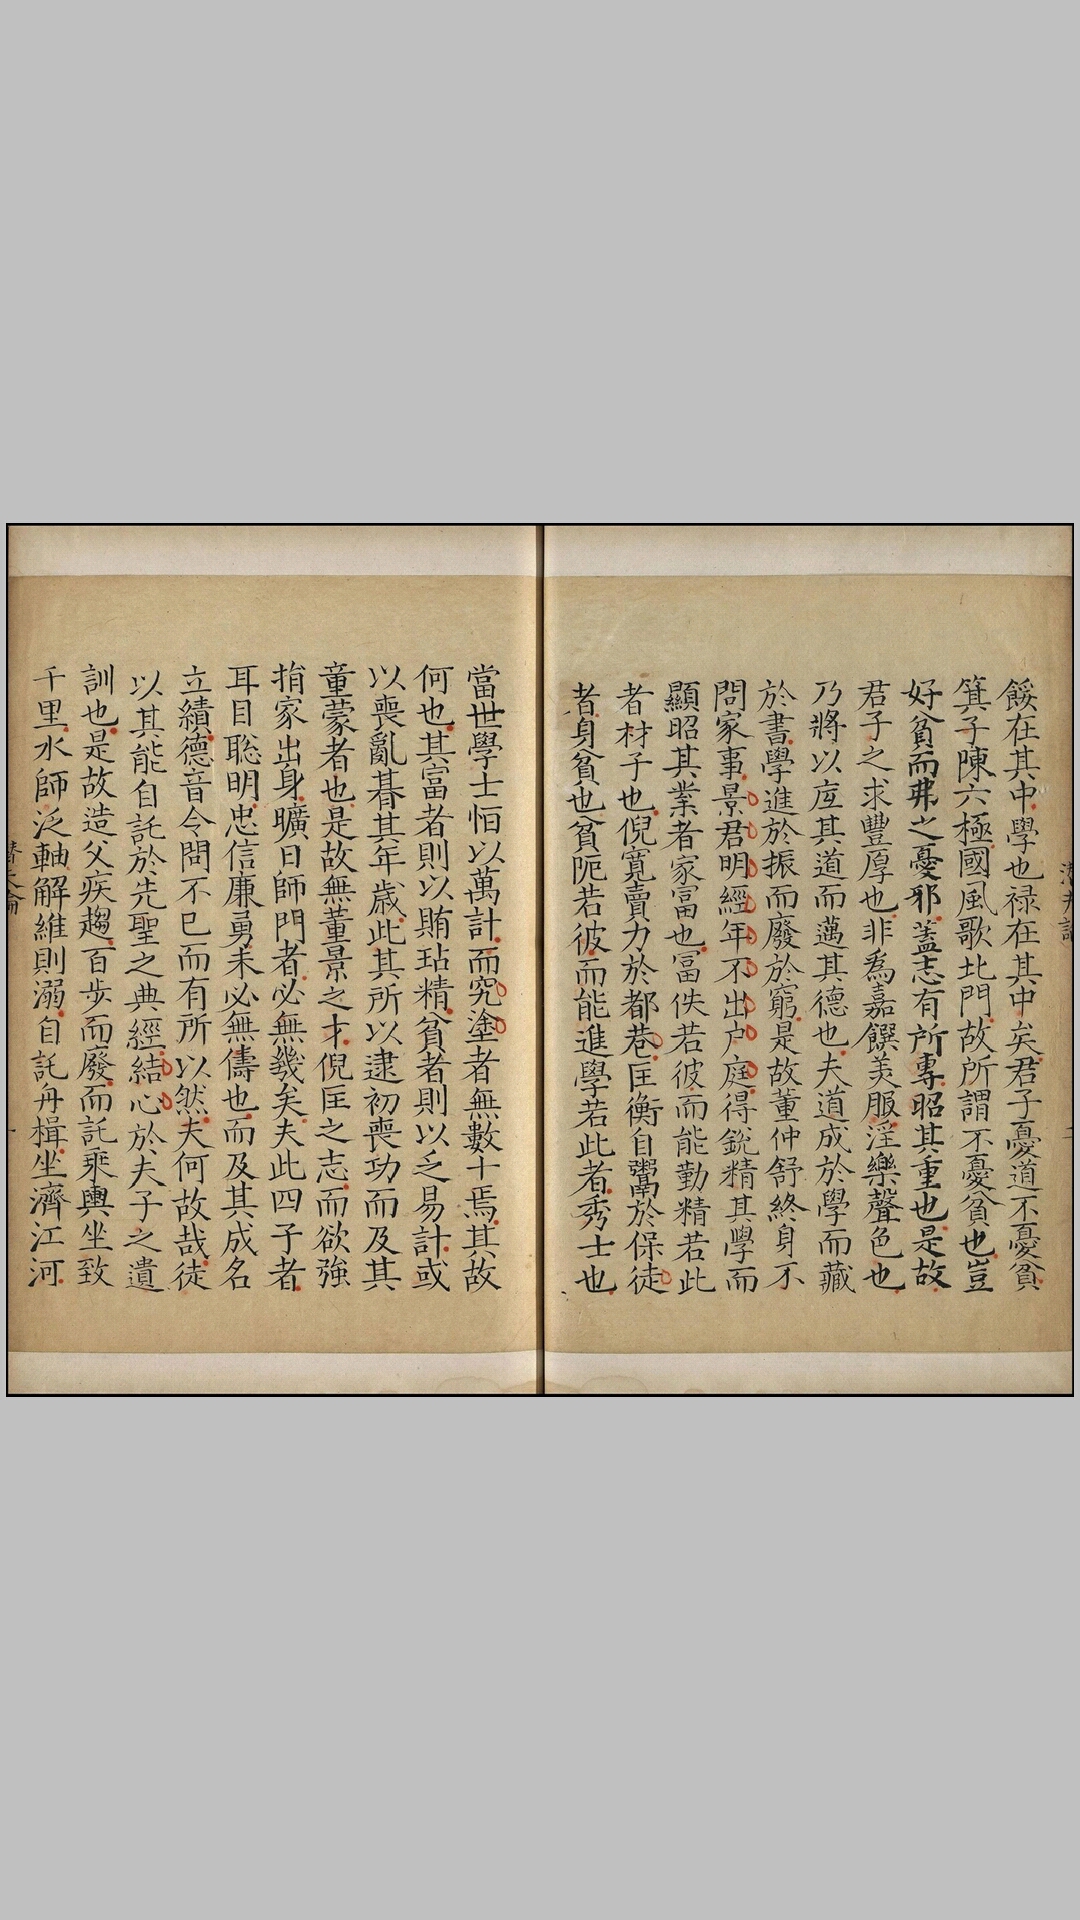 餒在其中學也禄在其中矣君子憂道不憂貧
箕子陳六極國風歌北門故所謂不憂貧也豈
好貧而弗之憂邪蓋志有所專昭其重也是故
君子之求豐厚也非爲嘉饌美服淫樂聲色也
乃將以底其道而邁其德也夫道成於學而藏
於書學進於振而廢於窮是故董仲舒終身不
問家事景君明經年不出户庭得銳精其學而
顯昭其業者家富也富佚若彼而能勤精若此
者材子也倪寬賣力於都巷匡衡自鬻於保徒
者身貧也貧阨若彼而能進學若此者秀士也
當世學士恒以萬計而究塗者無數十焉其故
何也其富者則以賄玷精貧者則以乏易計或
以喪亂朞其年歲此其所以逮初喪功而及其
童蒙者也是故無董景之才倪匡之志而欲強
捐家出身曠日師門者必無幾矣夫此四子者
耳目聡明忠信廉勇未必無儔也而及其成名
立績德音令問不已而有所以然夫何故哉徒
以其能自託於先聖之典經結心於夫子之遺
訓也是故造父疾趨百步而廢而託乘輿坐致
千里水師泛軸解維則溺自託舟楫坐濟江河